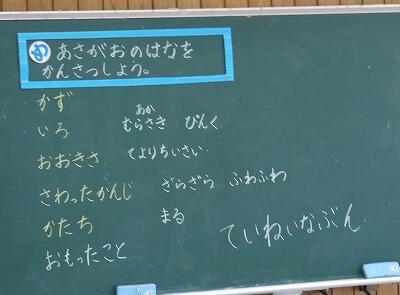 め あさがおのはなを
かんさつしよう。
かず
いろ あか むらさき ぴんく
おおきさ てよりちいさい
さわったかんじ ざらざら ふわふわ
かたち まる
おもったこと ていねいなぶん